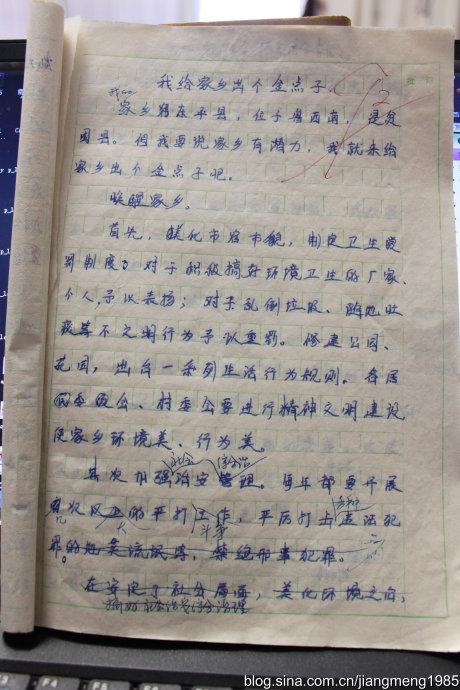 我给家乡出个金点子
我的
家乡将在平县，位于粤西南，是贫
困县。但我要说家乡有潜力，我就来给
家乡出个金点子吧。
唤醒家乡。
首先，美化市容市貌，制定卫生奖
罚制度。对于积极搞好环境卫生的厂家、
个人，予以表扬；对于乱倒垃圾、随地吐
痰等不文明行为予以重罚。修建公园、
花园，出台一系列生活行为规则。各居
委会、村委会要进行精神文明建设
使家乡环境美、行为美。
社会 综合治
其次加强治安管理。每年都要开展
几次以上的严打工作，严厉打击违法犯
斗争
罪的流氓等，禁绝刑事犯罪。
在安定了社会局面，美化环境之后，
搞好社会治安综合治理
blog.sina.com.cn/jiangmeng1985